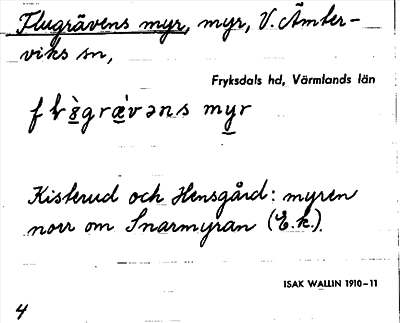 Flugrävens myr, myr, V. Ämter-
viks sn,
Fryksdals hd, Värmlands län
myr
Kisterud och Hensgård: myren
norr om Snarmyran (E.k.).
ISAK WALLIN 1910–11
4